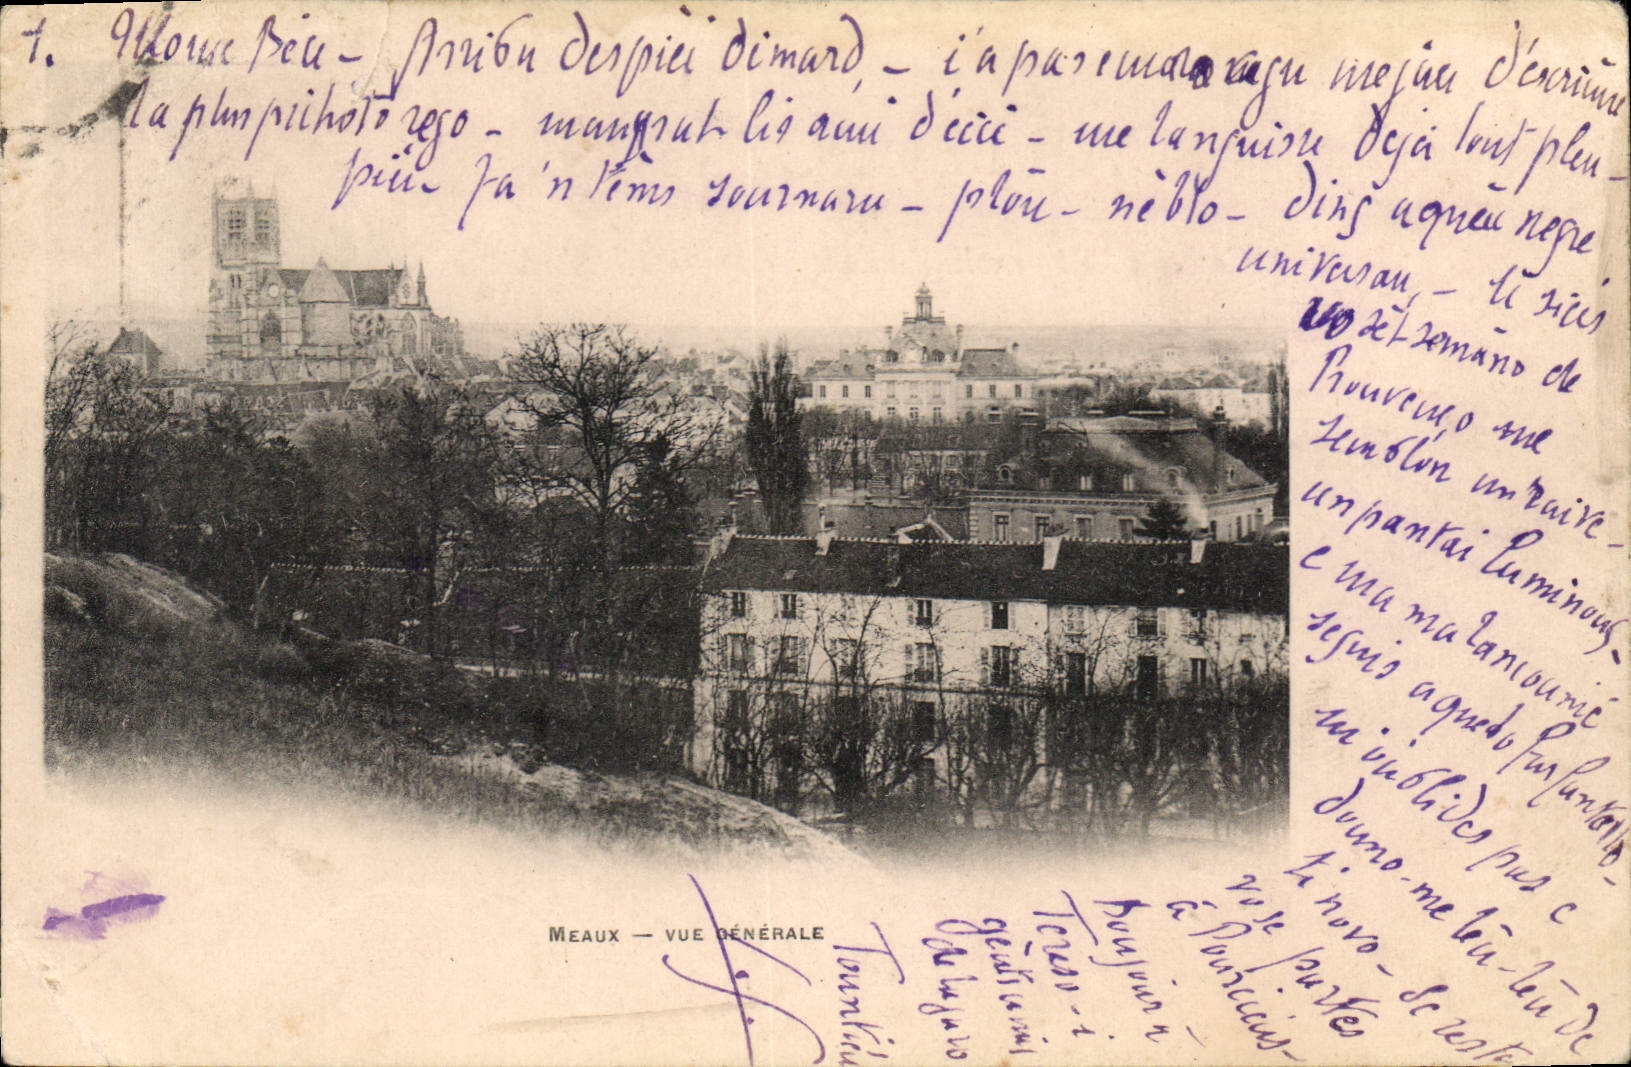 1. Moun Béu – Arribu despièi dimard, – i'a pas encaro agu mejan d'escriéure
la plus pichoto rego – manqrat lis ami d'eici – me languisse deja tout plen –
pièi fa 'n tèms sournaru – plòu – nèblo – dins aquéu negre
universau, – li sièis
o sèt semano de
Prouvènço me
semblon un raive –
un pantai luminous –
e ma malancounié
seguis aquelo
m'oublides pas e
douno-me lèu-lèu de
ti novo – Se resto
vose portes
à Pourcieus –
Bonjour à
Tereso – i
gènts amis
de la garo
Tountiéu
MEAUX — VUE GÉNÉRALE